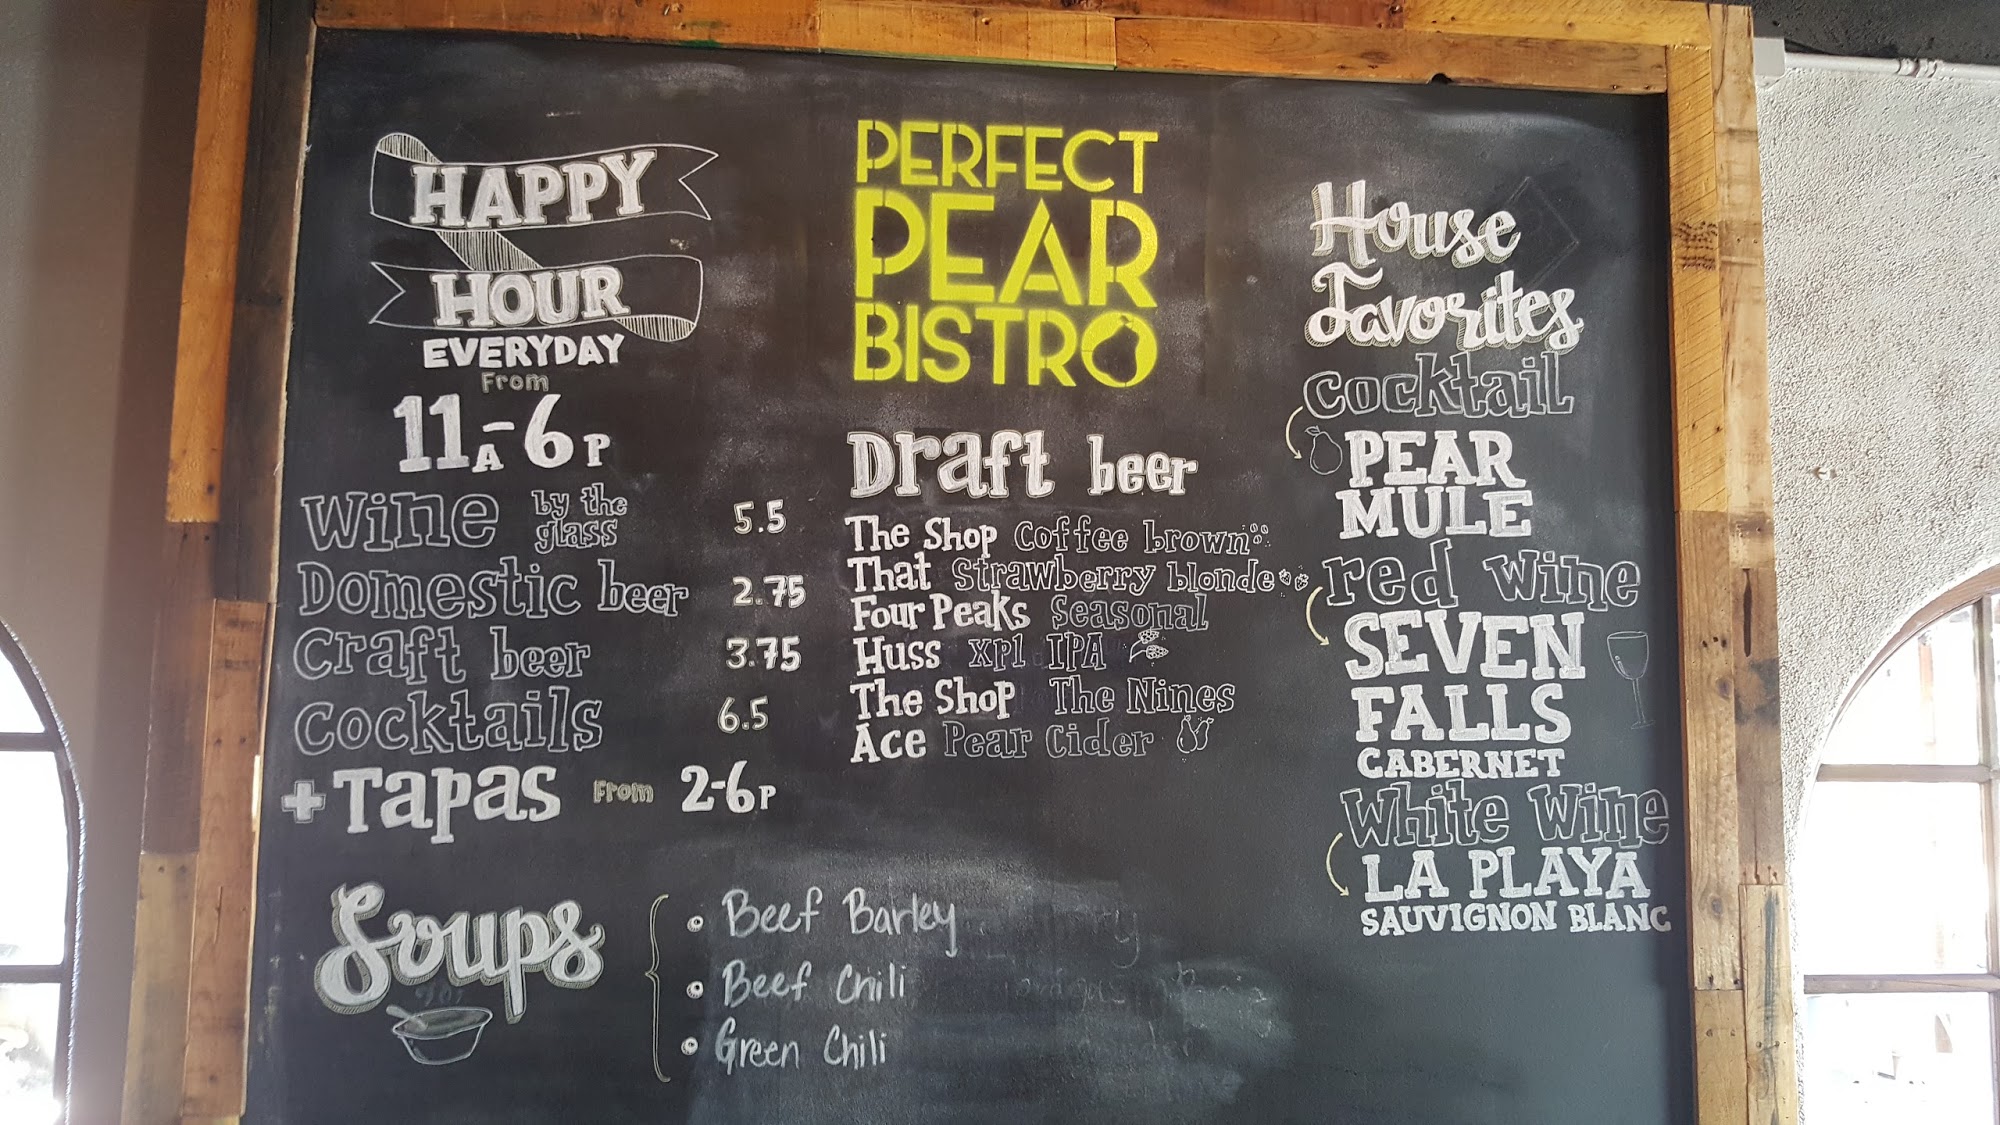 HAPPY
HOUR
EVERYDAY
From
11A-6P
Wine by the glass 5.5
Domestic beer 2.75
Craft beer 3.75
Cocktails 6.5
+Tapas From 2-6P
Soups
Beef Barley
Beef Chili
Green Chili
PERFECT
PEAR
BISTRO
Draft beer
The Shop Coffee brown
That Strawberry blonde
Four Peaks Seasonal
Huss xp1 IPA
The Shop The Nines
Ace Pear Cider
House
Favorites
Cocktail
PEAR
MULE
red wine
SEVEN
FALLS
CABERNET
White Wine
LA PLAYA
SAUVIGNON BLANC